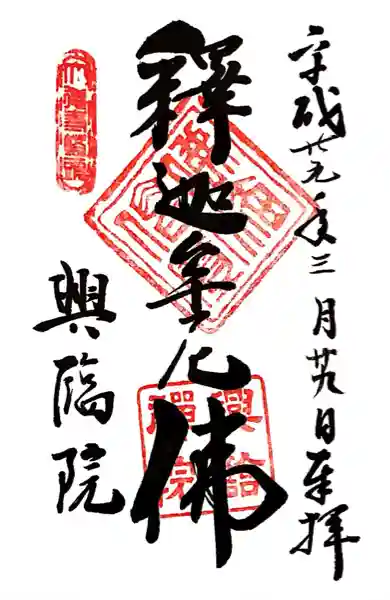 平成廿九年三月廿九日奉拝
釋迦牟尼佛
興臨院
興臨禅院